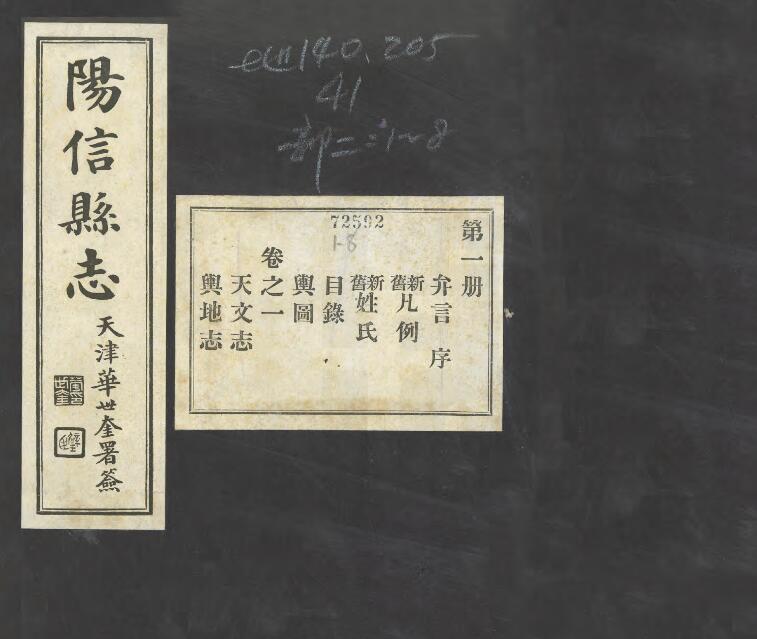 陽信縣志
天津華世奎署簽
140.205
41
部二:1~8
72592
1-8
第一册
弁言 序
新舊凡例
新舊姓氏
目錄
輿圖
卷之一
天文志
輿地志